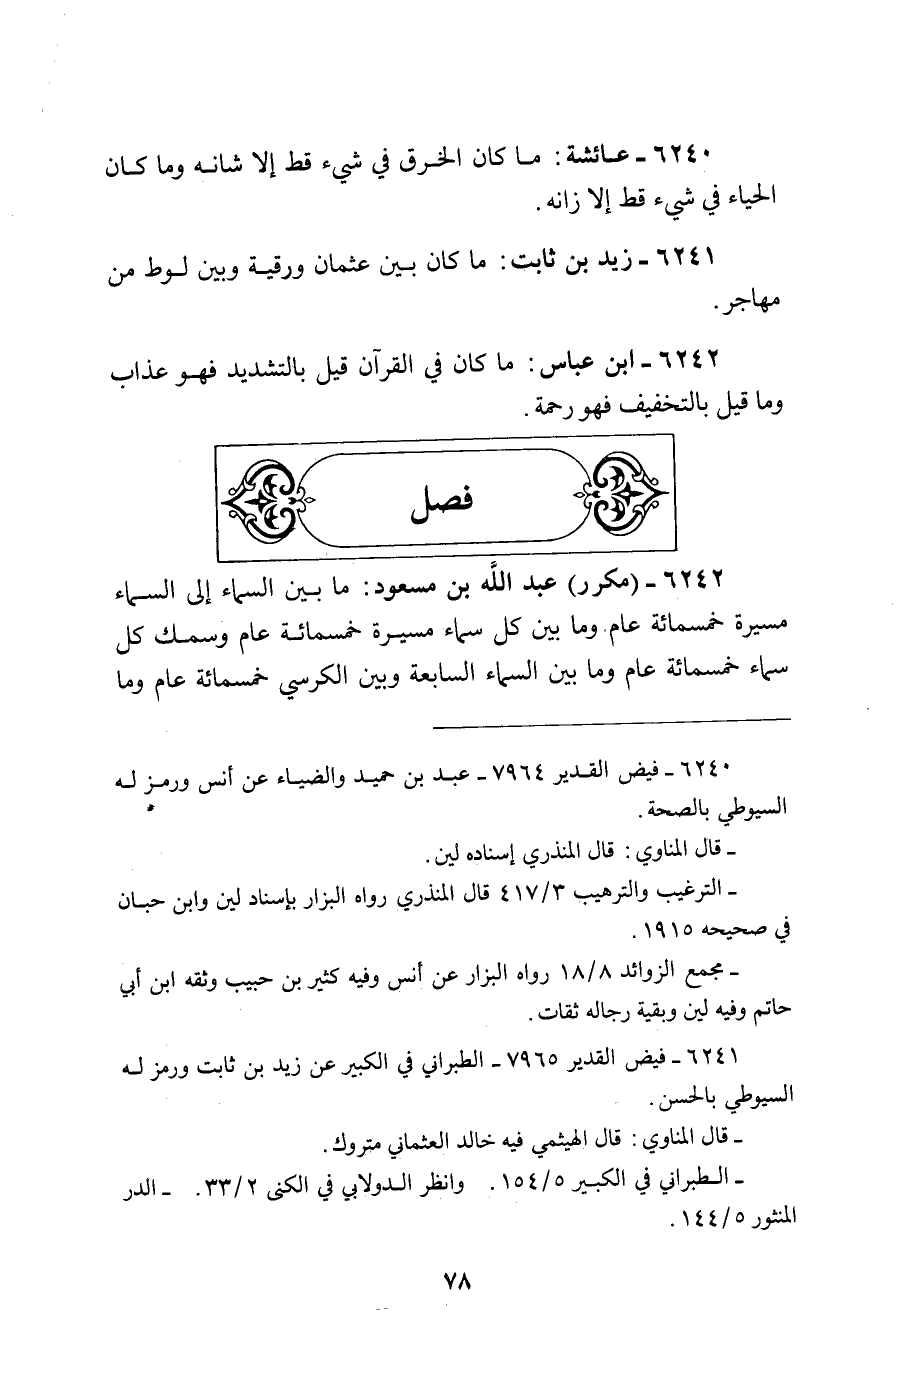 ٦٢٤٠ ـ عـائشة : مـا كان الخـرق في شيء قط إلا شانـه وما كـان
الحياء في شيء قط إلا زانه .
٦٢٤١ ـ زيد بن ثابت : ما كان بـين عثمان ورقيـة وبين لـوط من
مهاجر .
٦٢٤٢ ـ ابن عباس : ما كان في القرآن قيل بالتشديد فهـو عذاب
وما قيل بالتخفيف فهو رحمة .
فصل
٦٢٤٢ ـ (مكرر) عبد اللَّه بن مسعود : ما بـين السماء إلى السـماء
مسيرة خمسمائة عام وما بين كل سماء مسيـرة خمسمائـة عام وسمـك كل
سماء خمسمائة عام وما بين السماء السابعة وبين الكرسي خمسمائة عام وما
٦٢٤٠ ـ فيض القـدير ٧٩٦٤ ـ عبـد بن حميـد والضيـاء عن أنس ورمـز لـه
السيوطي بالصحة .
ـ قال المناوي : قال المنذري إسناده لين .
ـ الترغيب والترهيب ٣/٤١٧ قال المنذري رواه البزار بإسناد لين وابن حبـان
في صحيحه ١٩١٥ .
ـ مجمع الزوائد ٨/١٨ رواه البزار عن أنس وفيه كثير بن حبيب وثقه ابن أبي
حاتم وفيه لين وبقية رجاله ثقات .
٦٢٤١ ـ فيض القدير ٧٩٦٥ ـ الطبراني في الكبير عن زيد بن ثابت ورمز لـه
السيوطي بالحسن .
ـ قال المناوي : قال الهيثمي فيه خالد العثماني متروك .
ـ الـطبراني في الكبـير ٥/١٥٤ . وانظر الـدولابي في الكنى ٢/٣٣ . ـ الدر
المنثور ٥/١٤٤ .
٧٨